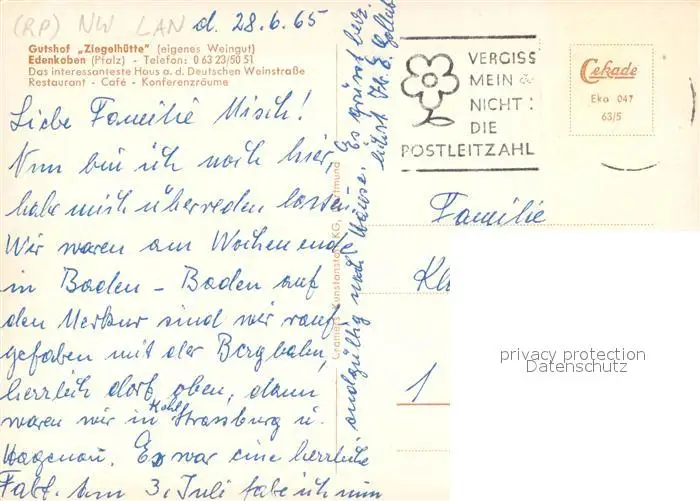 (RP) NW LAN d. 28.6.65
Gutshof „Ziegelhütte" (eigenes Weingut)
Edenkoben (Pfalz) - Telefon: 0 63 23/50 51
Das interessanteste Haus a. d. Deutschen Weinstraße
Restaurant - Café - Konferenzräume
Liebe Familie Misch!
Nun bin ich noch hier,
habe mich überreden lassen.
Wir waren am Wochenende
in Baden-Baden auf
den Merkur sind wir rauf
gefahren mit der Bergbahn,
herrlich dort oben, dann
waren wir in Kehl Strassburg u.
Hagenau. Es war eine herrliche
Fahrt. Am 3. Juli fahre ich nun
endgültig nach Hause. Es grüsst herz-
lichst Ihr E.
Cramers Kunstanstalt KG, Dortmund
VERGISS
MEIN
NICHT:
DIE
POSTLEITZAHL
Cekade
Eka 047
63/5
Familie
1
privacy protection
Datenschutz